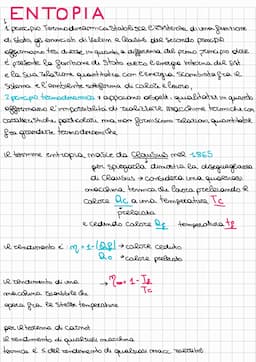 ENTOPIA
1° principio Termodinamica stabilisce l'esistenza di una funzione
di stato gli enunciati di Kelvin e Clausius del secondo principio
affermano tra di due in quanto a differenza del primo principio dove
è presente la funzione di stato detta energia interna del sist.
e la sua relazione quantitativa con l'energia scambiata fra il
sistema e l'ambiente sottoforma di calore e lavoro,
2° principio termodinamica: affacciano aspetti qualitativi in quanto
affermano l'impossibilità di realizzare macchine termiche con
caratteristiche particolari ma non forniscono relazioni quantitative
fra grandezze termodinamiche
Il termine entropia nasce da Clausius nel 1865
per spiegarla dimostra la disuguaglianza
di Clausius → considera una qualsiasi
macchina termica che lavora prelevando il
calore Qc a una temperatura Tc
prelevata
e cedendo calore Qf temperatura tf
il rendimento è η = 1 - |Qf| → calore ceduto
Qc → calore prelevato
il rendimento di una → ηrev = 1 - Tf
macchina reversibile che Tc
opera fra le stesse temperature
per il teorema di Carnot
il rendimento di qualsiasi macchina
termica è ≤ del rendimento di qualsiasi macc